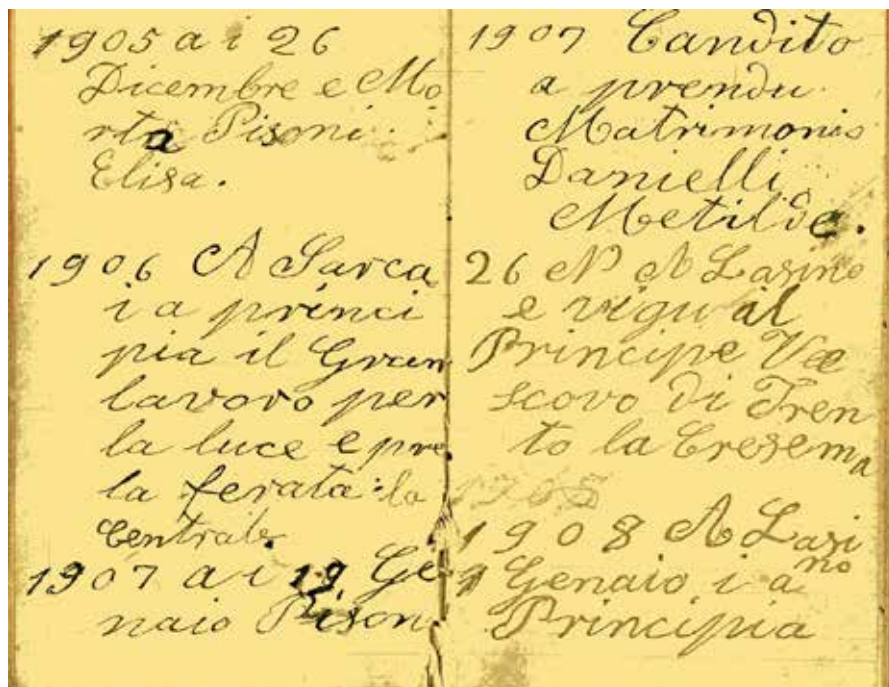 1905 a i 26
Dicembre e Mo
rta Pisoni
Elisa.
1906 A Sarca
i a princi
pia il Gran
lavoro per
la luce e pre
la ferata: la
Centrale.
1907 a i 19 Ge
naio Pison
1907 Candito
a prendu
Matrimonio
Danielli
Metilde.
26 N A Lasino
e vigu al
Principe Ve
scovo di Tren
to la Cresema
1908 A Lasi
no
Genaio i a
Principia